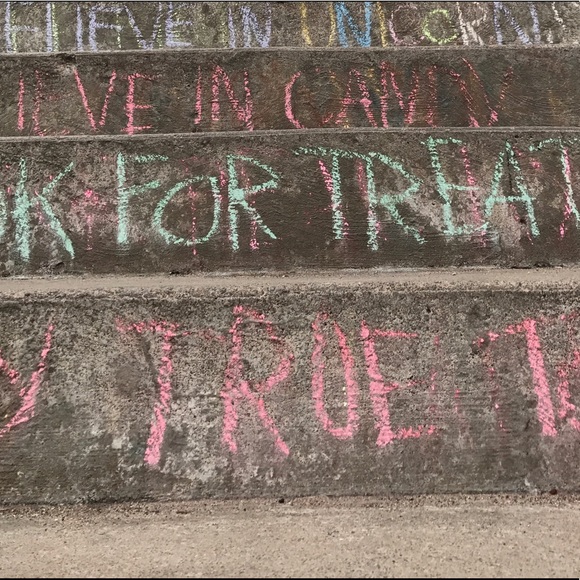 ELIEVE IN UNICORNS
IEVE IN CANDY
OK FOR TREAT
Y TRUE T